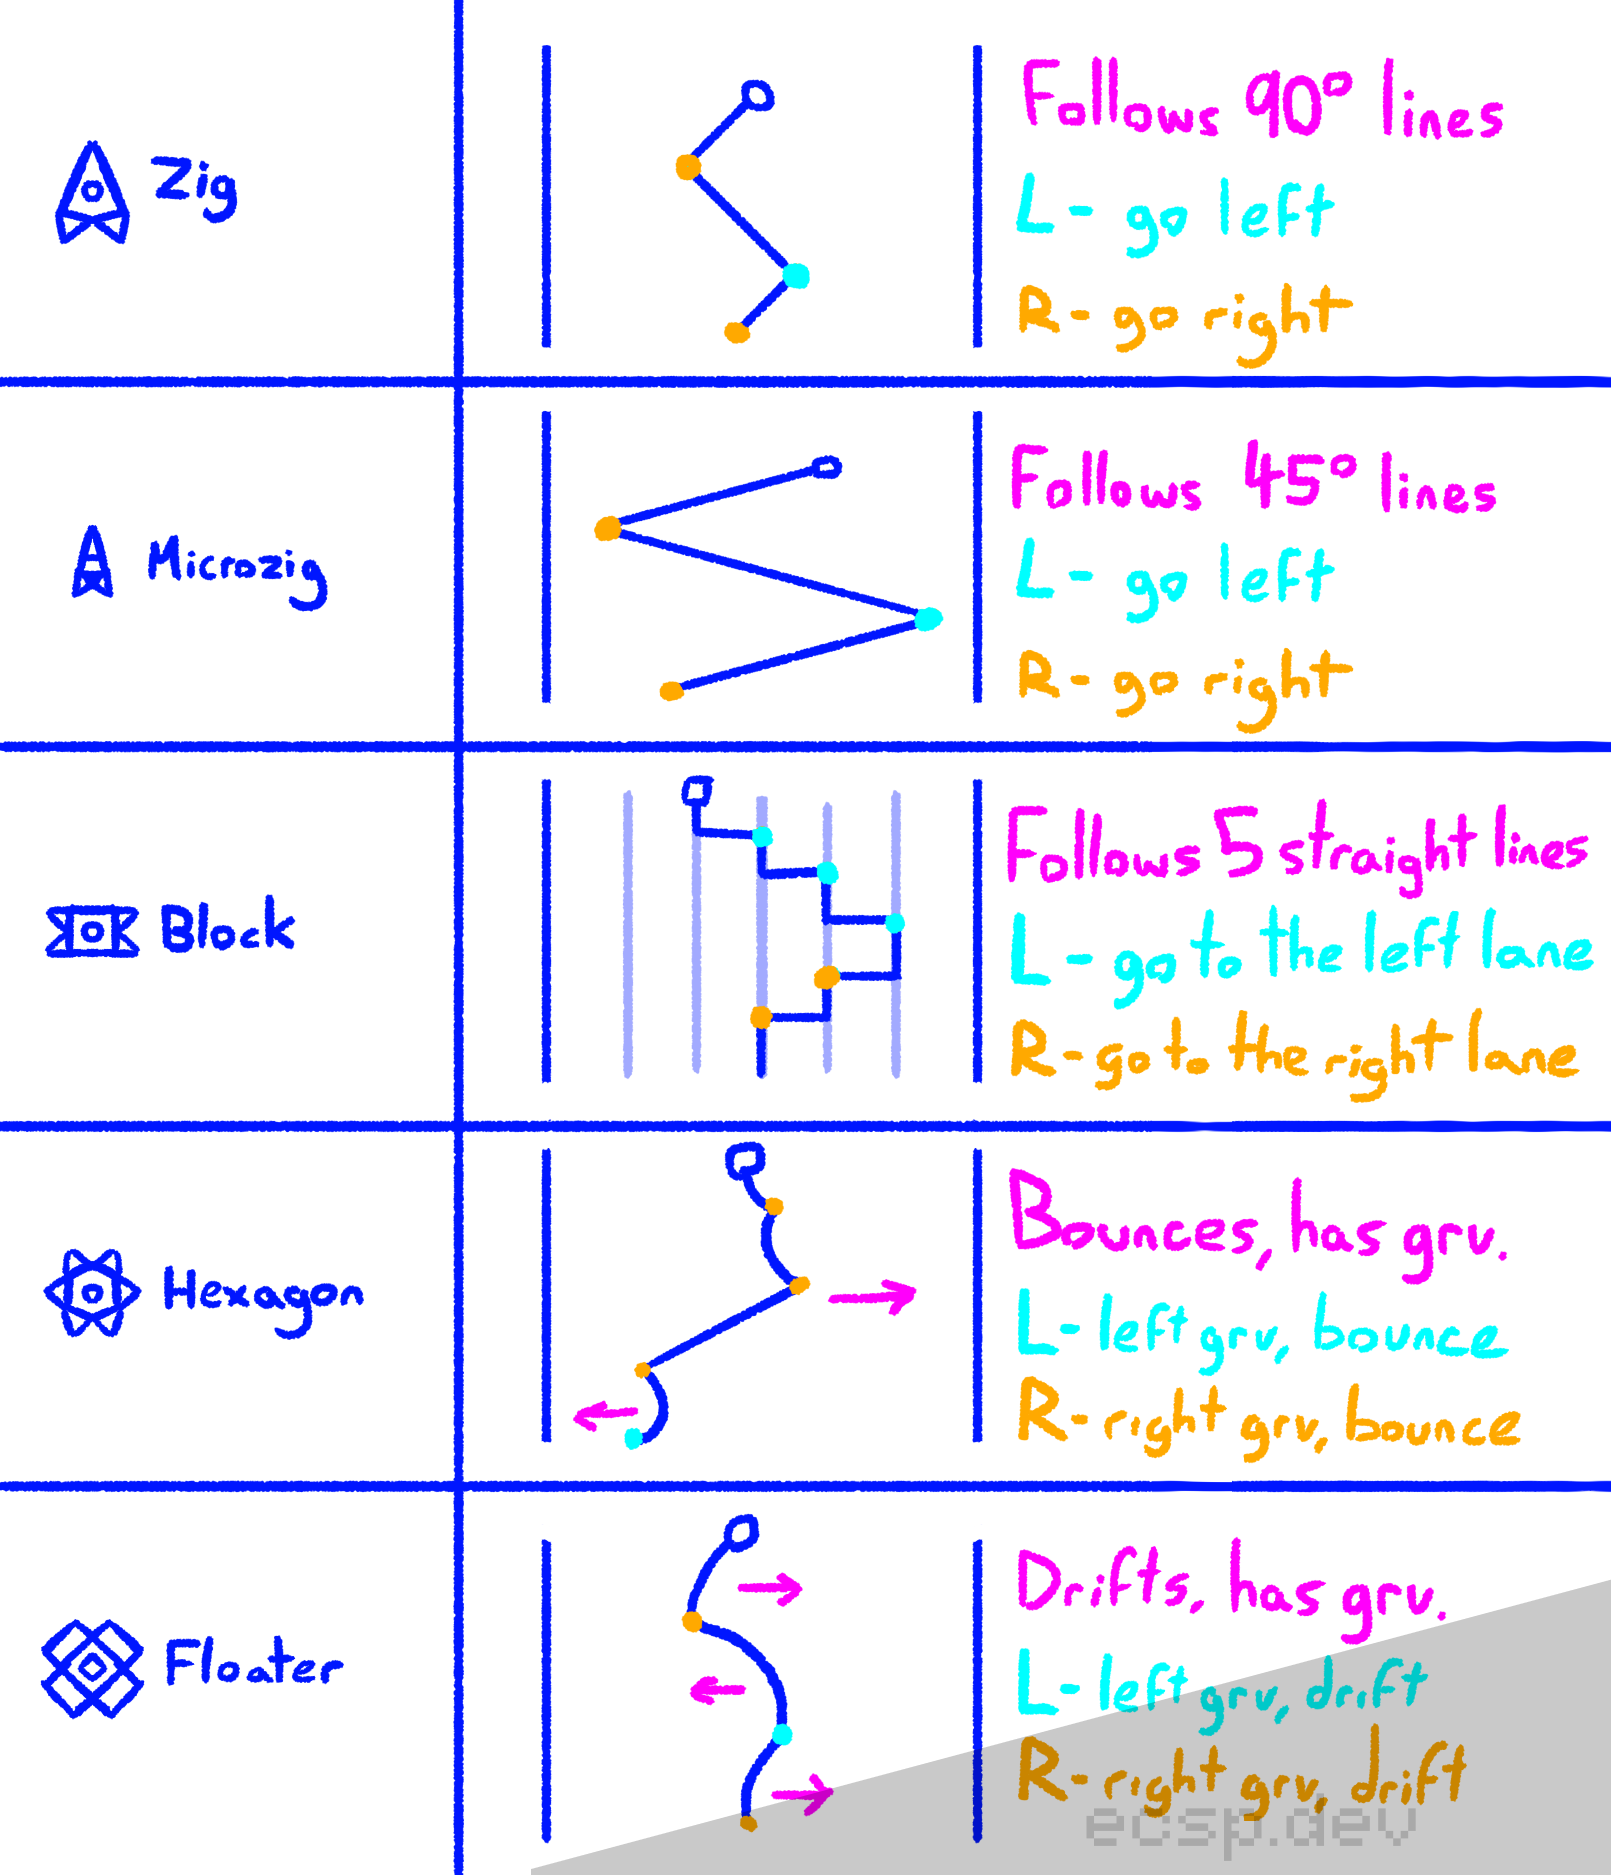 Zig
Follows 90° lines
L- go left
R- go right
Microzig
Follows 45° lines
L- go left
R- go right
Block
Follows 5 straight lines
L- go to the left lane
R- go to the right lane
Hexagon
Bounces, has grv.
L- left grv, bounce
R- right grv, bounce
Floater
Drifts, has grv.
L- left grv, drift
R- right grv, drift
ecsp.dev